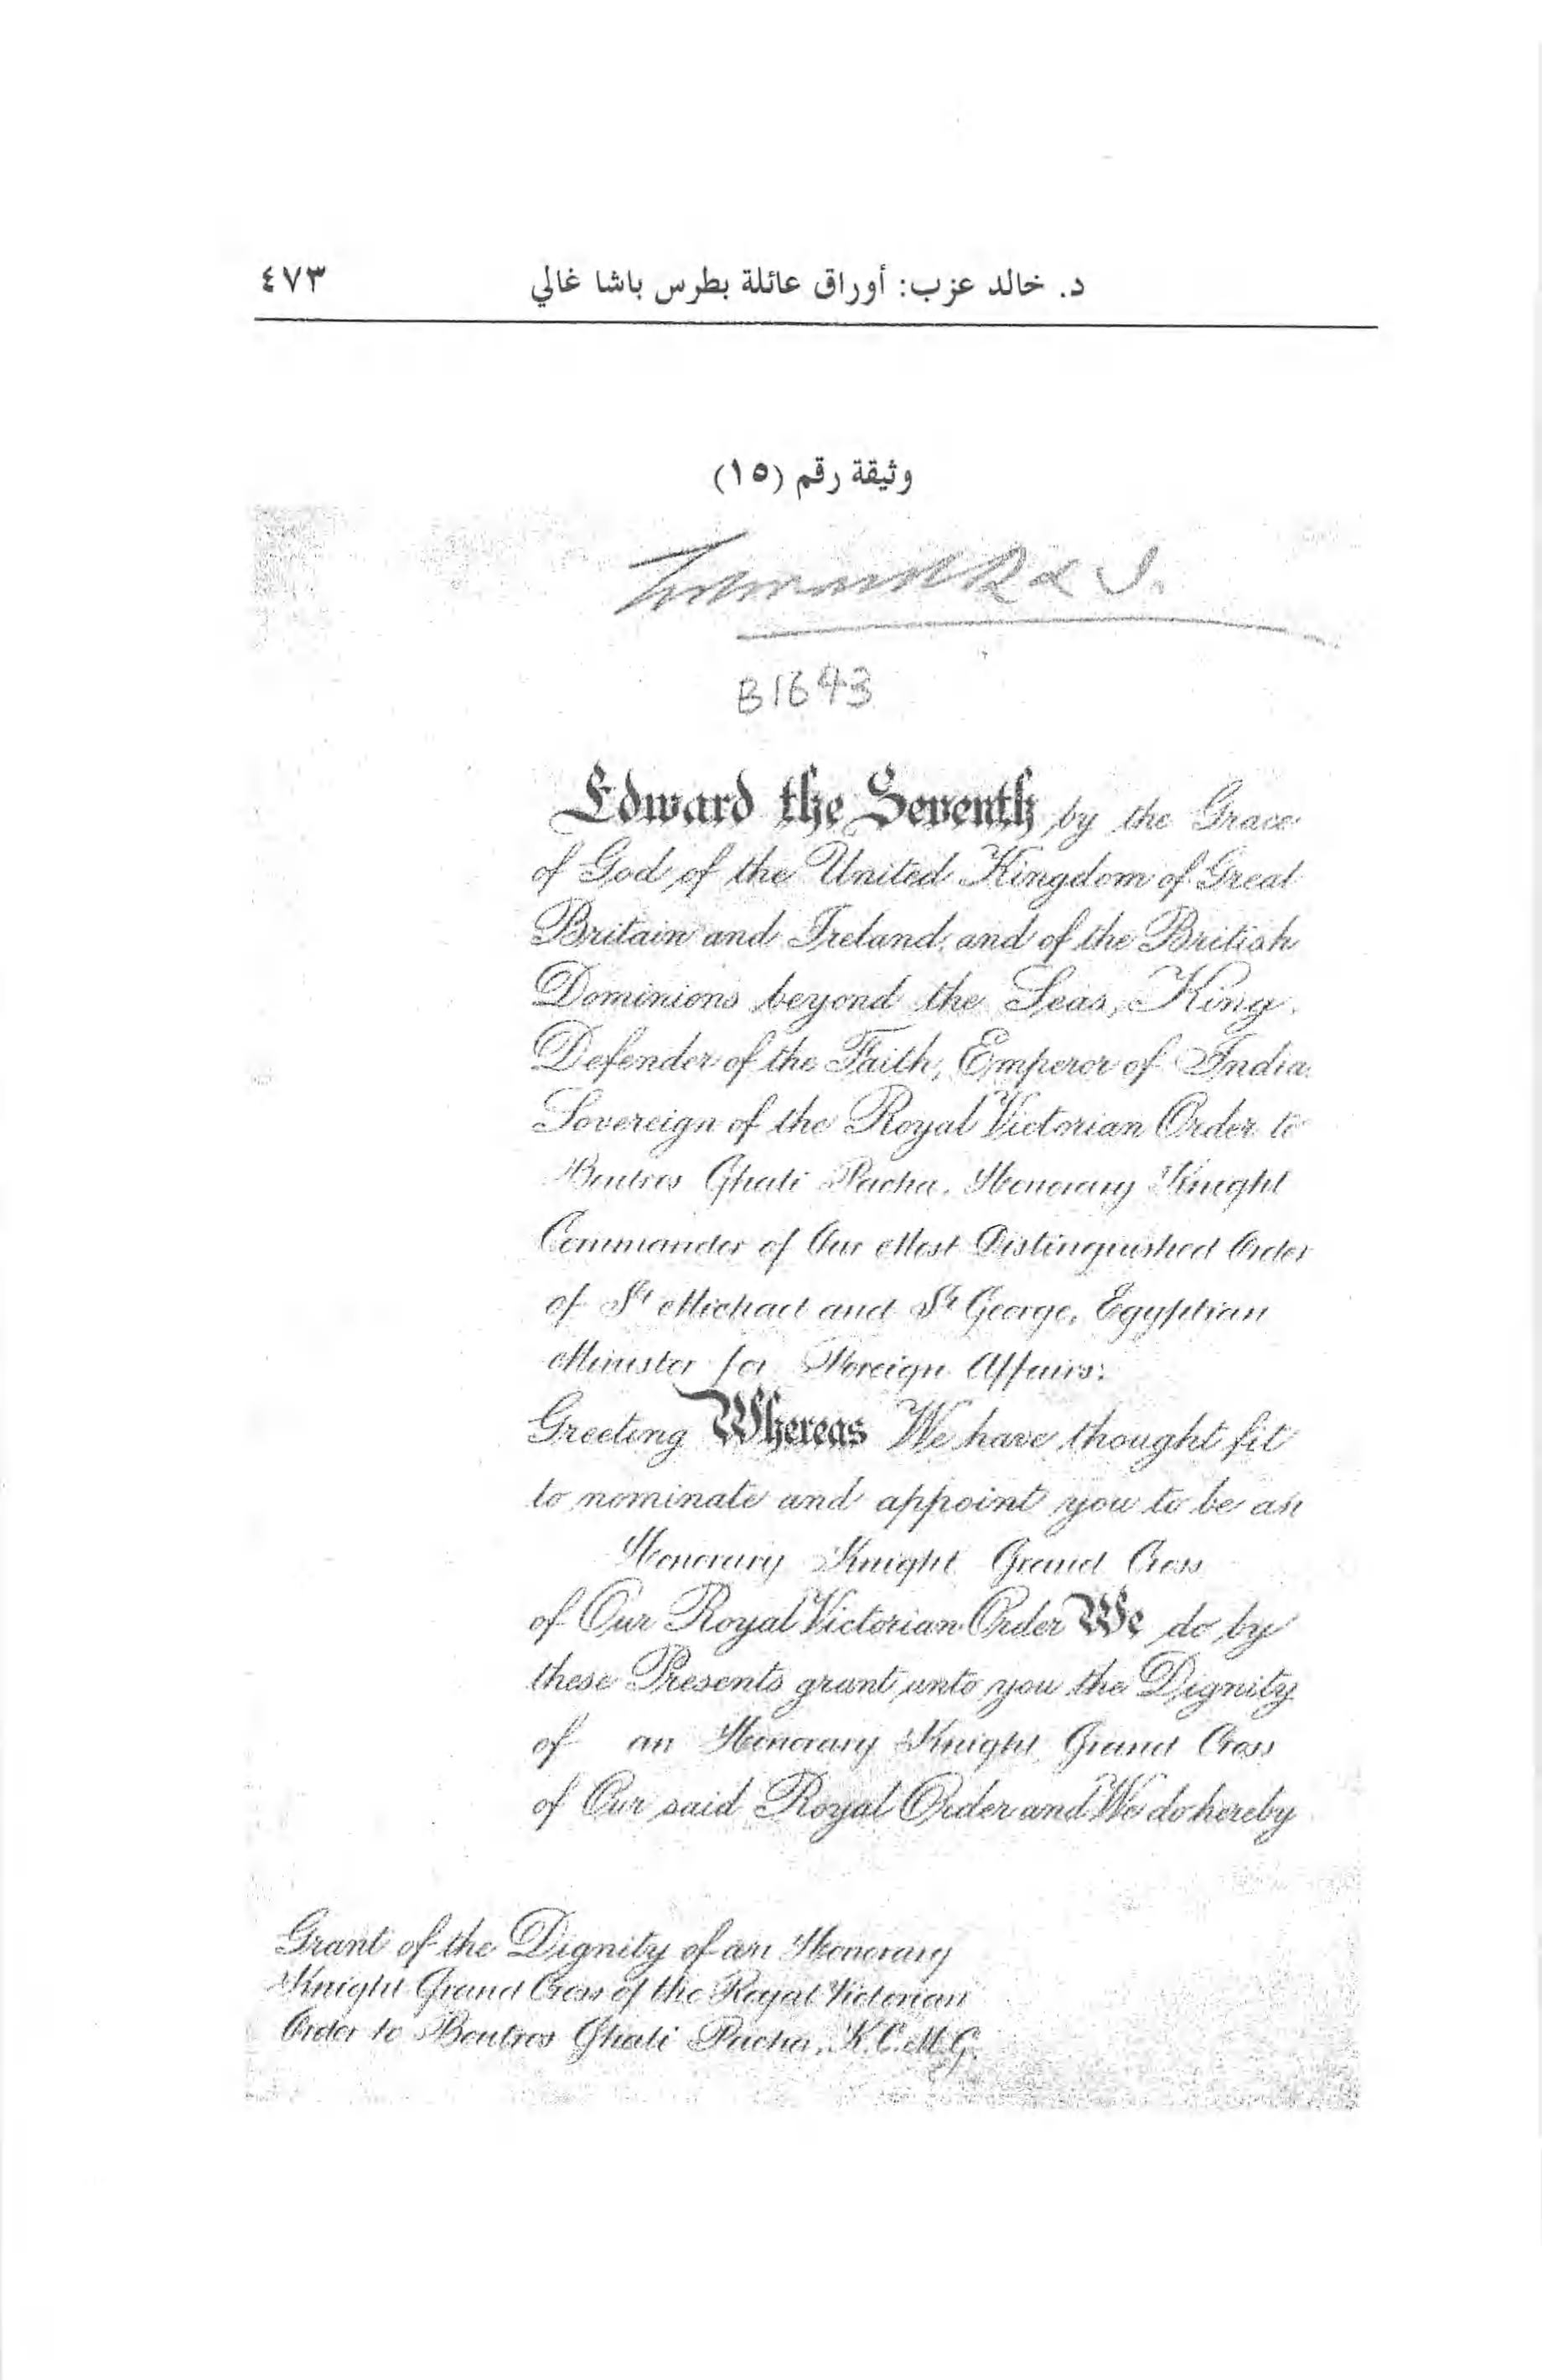 د. خالد عزب: أوراق عائلة بطرس باشا غالي ٤٧٣
وثيقة رقم (١٥)
Edward R & I.
B1643
Edward the Seventh by the Grace
of God of the United Kingdom of Great
Britain and Ireland, and of the British
Dominions beyond the Seas, King,
Defender of the Faith, Emperor of India
Sovereign of the Royal Victorian Order to
Boutros Ghali Pacha, Honorary Knight
Commander of Our Most Distinguished Order
of St Michael and St George, Egyptian
Minister for Foreign Affairs:
Greeting Whereas We have thought fit
to nominate and appoint you to be an
Honorary Knight Grand Cross
of Our Royal Victorian Order We do by
these Presents grant unto you the Dignity
of an Honorary Knight Grand Cross
of Our said Royal Order and We do hereby
Grant of the Dignity of an Honorary
Knight Grand Cross of the Royal Victorian
Order to Boutros Ghali Pacha, K.C.M.G.